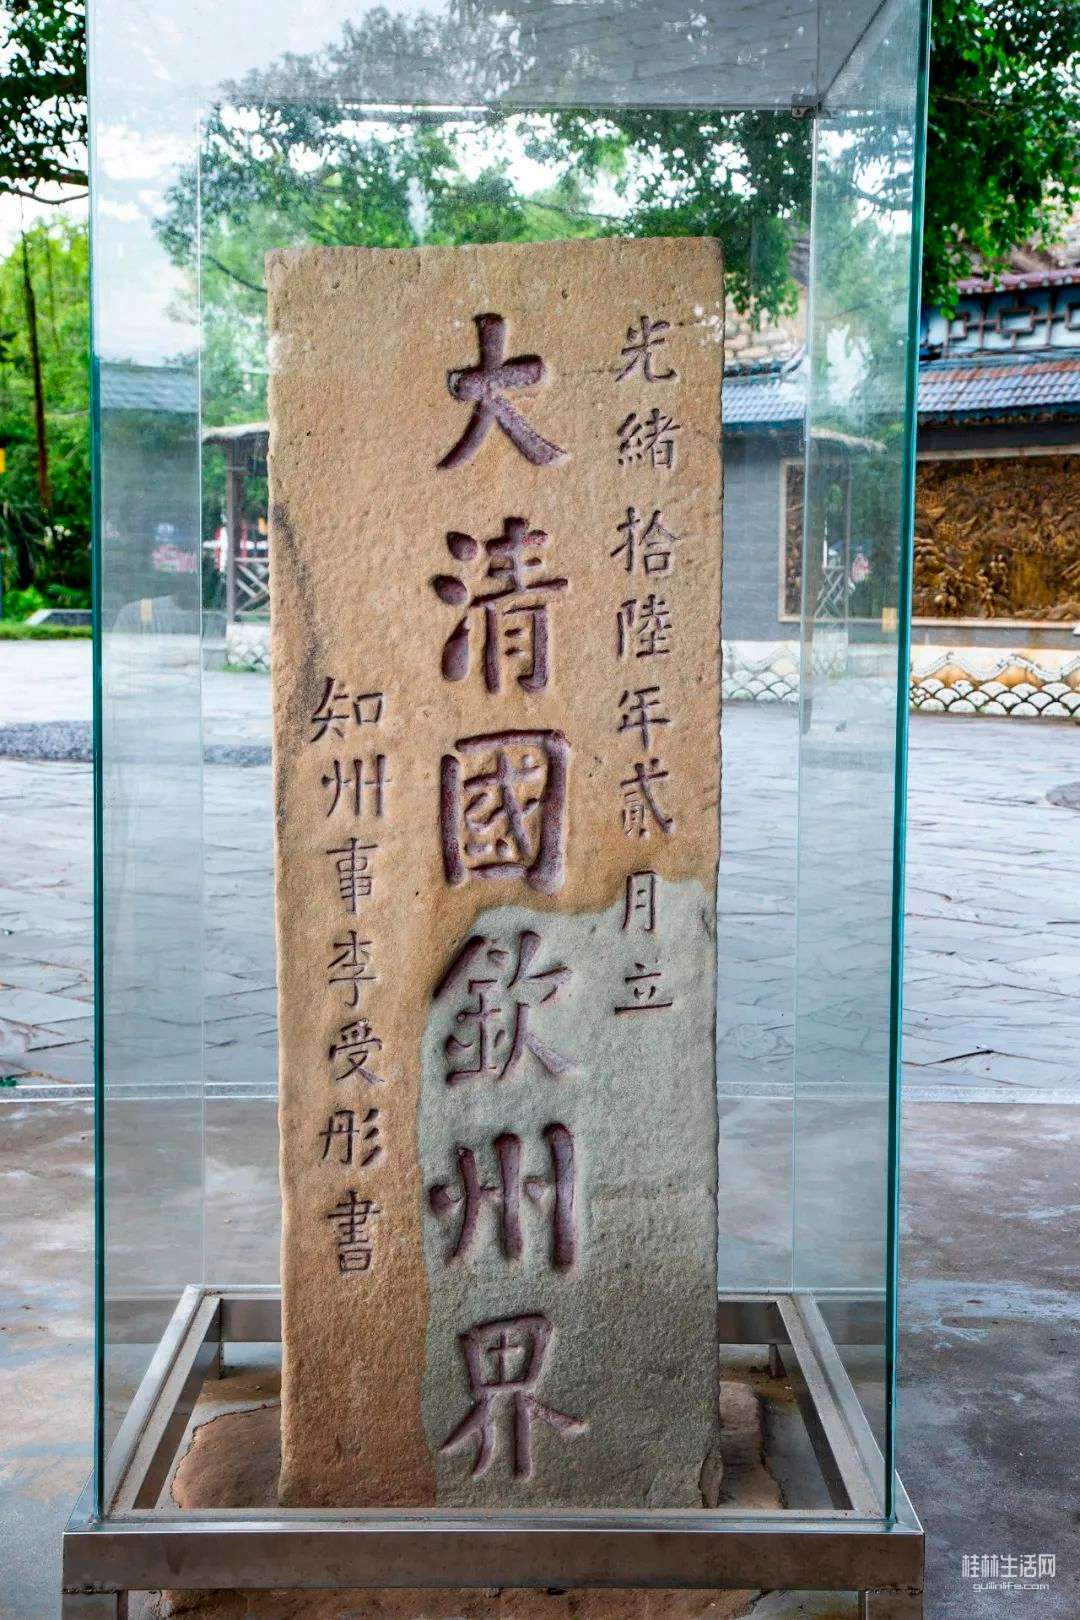 光緒拾陸年貳月立
大清國欽州界
知州事李受彤書
桂林生活网
guilinlife.com